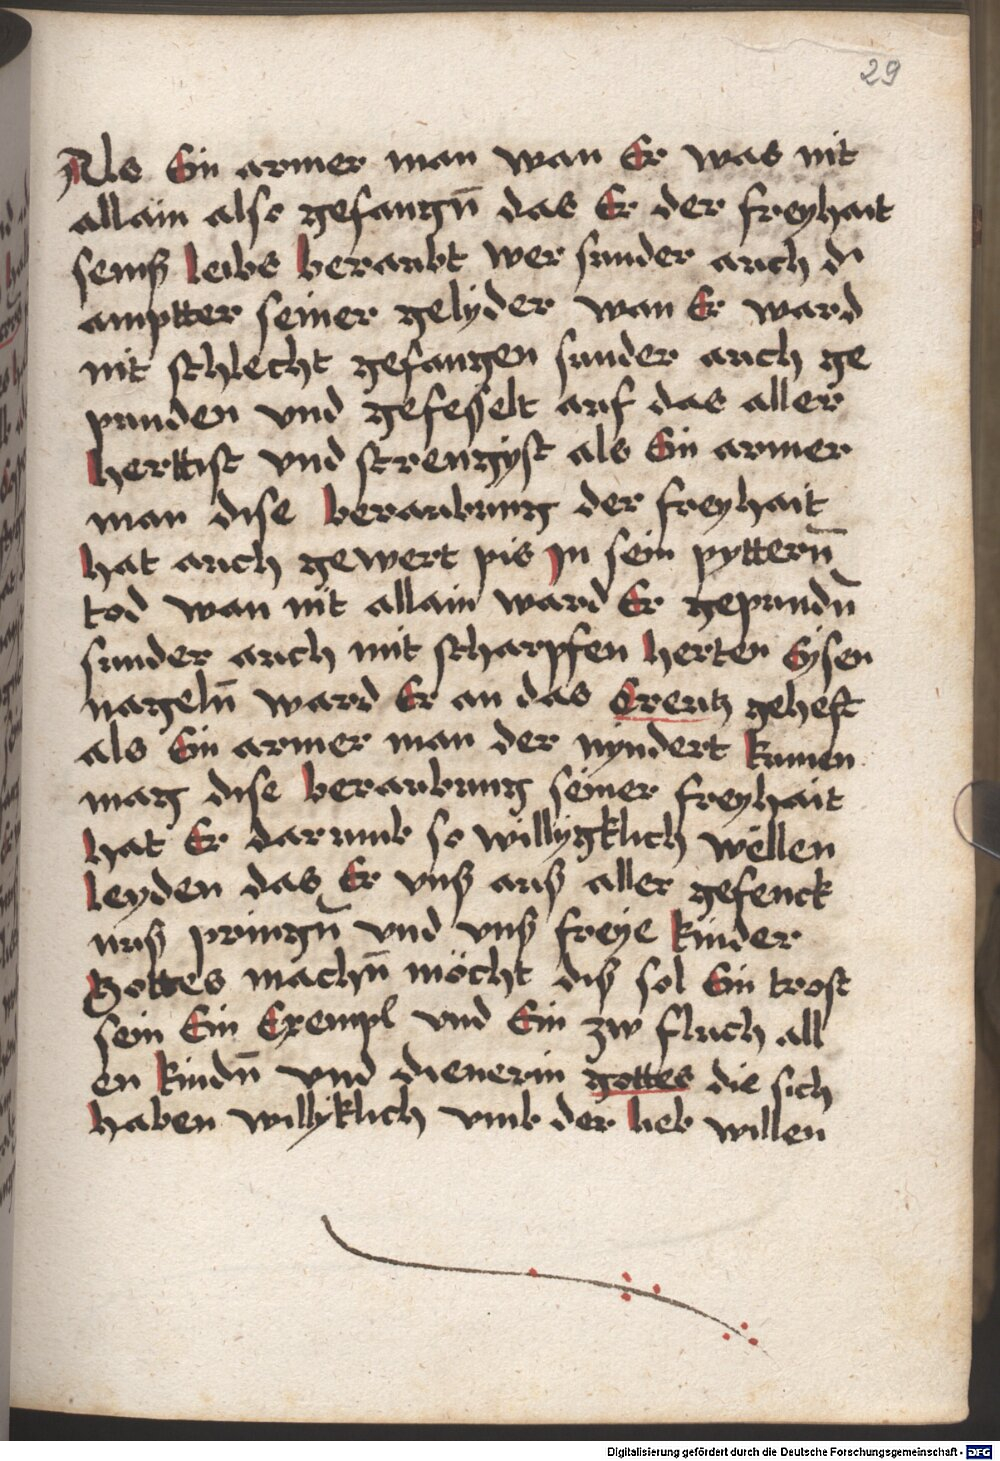 29
Als Ein armer man wan Er was nit
allain also gefangn̄ das Er der freyhait
seinß leibs beraubt wer sunder auch di
amptter seiner gelyder wan Er ward
nit schlecht gefangen sunder auch ge
punden vnd gefesselt auf das aller
herttist vnd strengyst als Ein armer
man dise beraubung der freyhait
hat auch gewert pis jn sein pyttern̄
tod wan nit allain ward Er gepundn̄
sunder auch mit scharpfen herten Eysen
nageln̄ ward Er an das Creutz geheft
als Ein armer man der nyndert kumen
mag dise beraubung seiner freyhait
hat Er darumb so willygklich wëllen
leyden das Er vnß auß aller gefenck
nuß pringn̄ vnd vnß freye kinder
Gottes machn̄ möcht diß sol Ein trost
sein Ein Exempl vnd Ein zw fluch all
en kindn̄ vnd dienerin gottes die sich
haben willyklich vmb der lieb willen
Digitalisierung gefördert durch die Deutsche Forschungsgemeinschaft - DFG